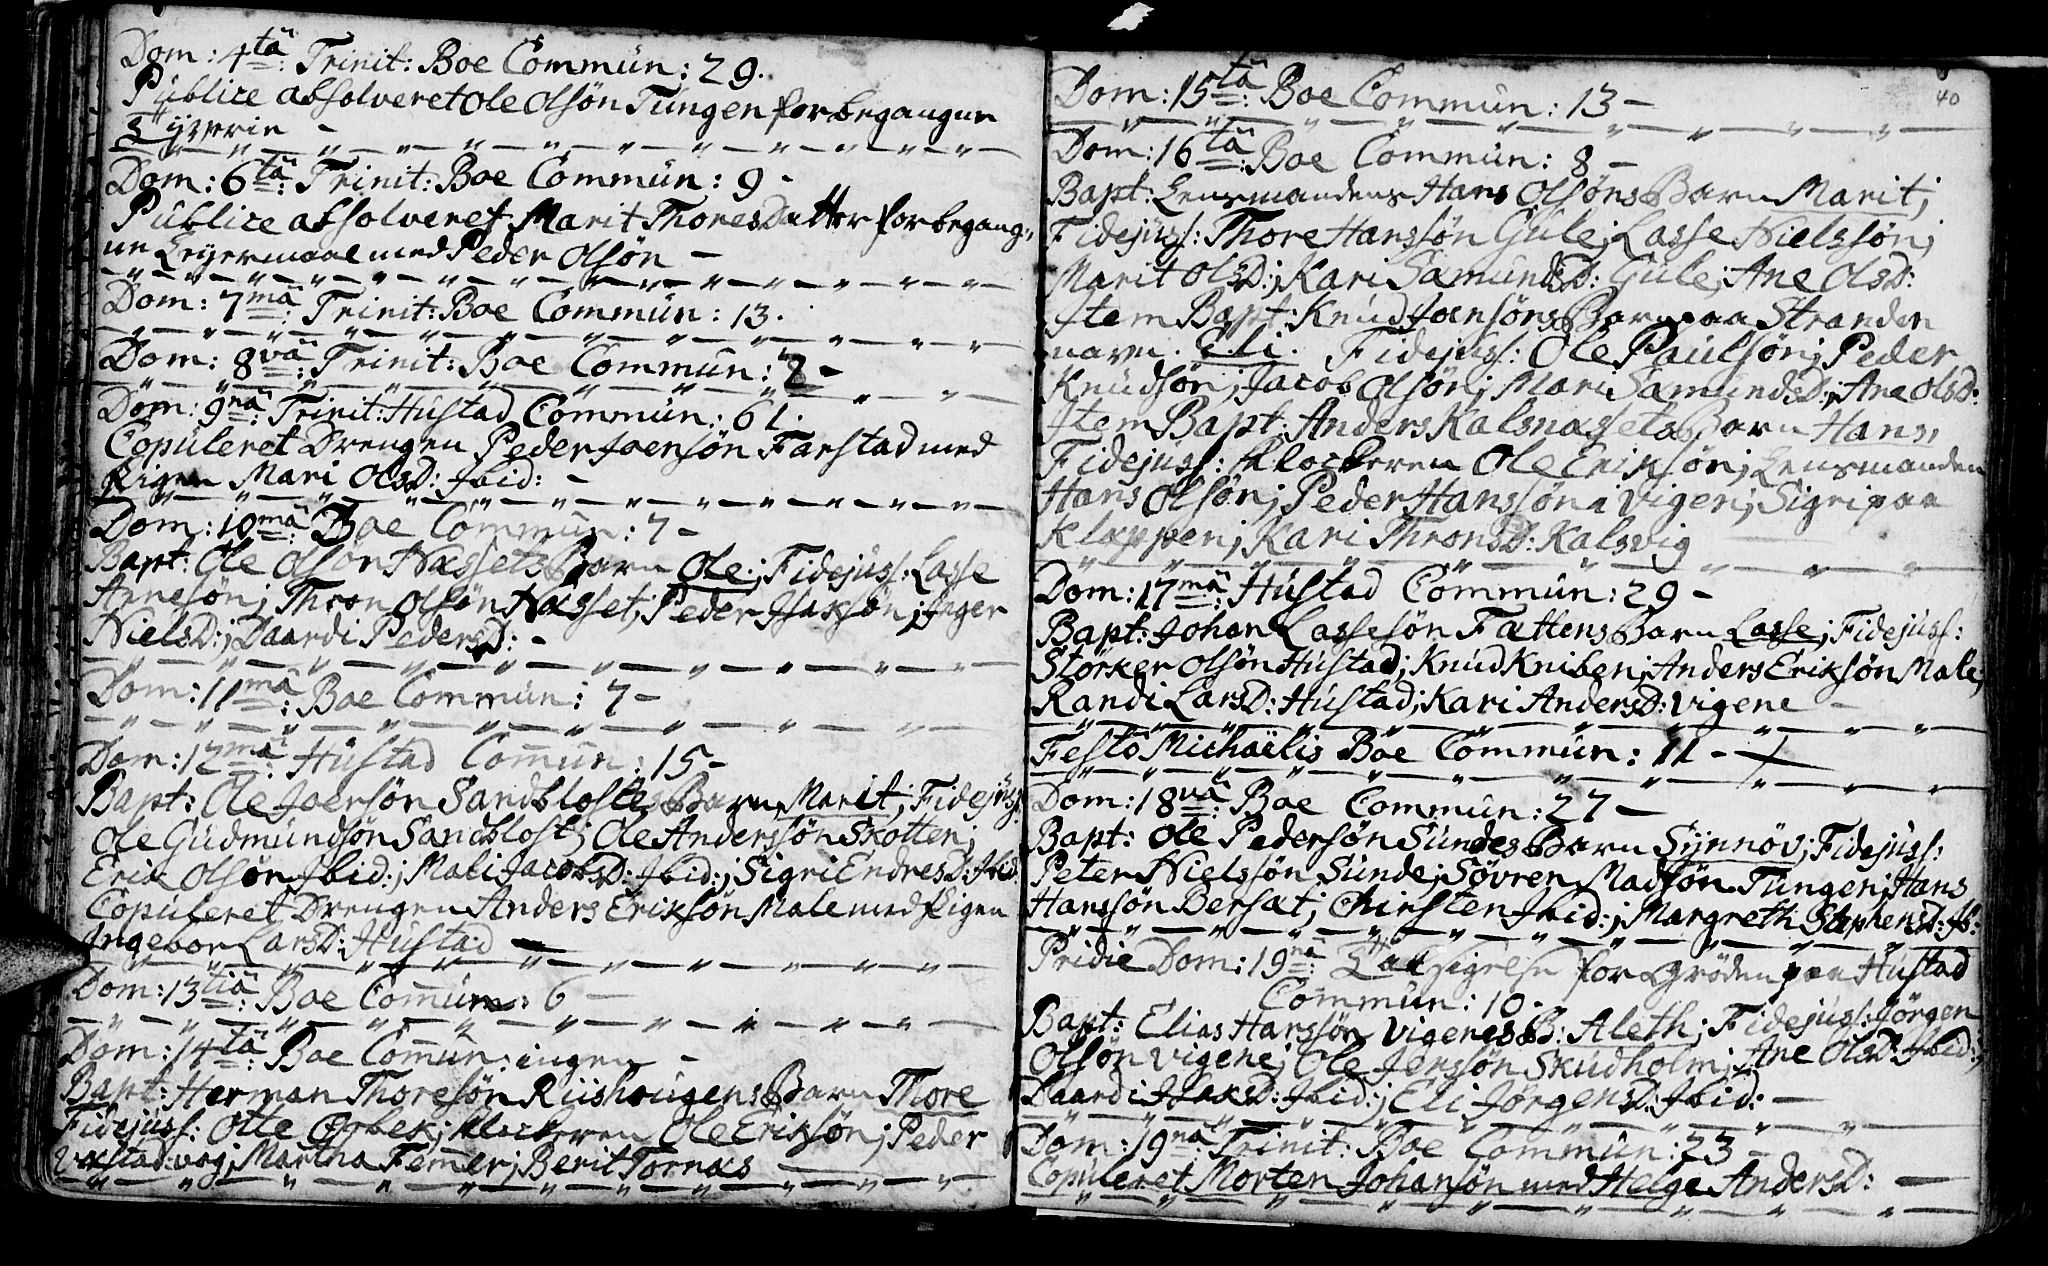 Dom: 4tâ: Trinit: Boe Commûn: 29.
Publice absolveret Ole Olsön Tûngen for begangen
Dom: 6tâ: Trinit: Boe Commûn: 9 -
Publice absolveret Marit Thoresdatter for begang-
ne Leyermaal med Peder Olsön -
Dom: 7mâ: Trinit: Boe Commûn: 13.
Dom: 8vâ: Trinit: Boe Commûn: 2 -
Dom: 9nâ: Trinit: Hûstad Commûn: 61.
Copûleret Drengen Peder Joensön Farstad med
Pigen Mari OlsD: Ibid: -
Dom: 10mâ: Boe Commûn: 7 -
Bapt: Ole Olsön Næssets Barn Ole; Fidejûss: Lasse
Arnesön; Thron Olsön Næsset; Peder Isaksön; Inger
NielsD:; Baardi PedersD: -
Dom: 11mâ: Boe Commûn: 7 -
Dom: 12mâ: Hûstad Com̄ûn: 15 -
Bapt: Ole Joensön Sandblostes Barn Marit; Fidejûss:
Ole Gûdmûndsön Sandblost; Ole Anderssön Skotten;
Erik Olsön Ibid:; Mali JacobsD: Ibid:; Sigri EndresD: Ibid:
Copûleret Drengen Anders Eriksön Male med Pigen
Ingebor LarsD: Hûstad
Dom: 13tiâ: Boe Com̄ûn: 6 -
Dom: 14tâ: Boe Com̄ûn: ingen -
Bapt: Herman Thoresön Riishoûgens Barn Thore
Fidejûss: Otte Qvbek; Klockeren Ole Eriksön; Peder
Vestadvog; Martha Fem̄er; Berit Tornæs
40
Dom: 15tâ: Boe Commûn: 13 -
Dom: 16tâ: Boe Commûn: 8 -
Bapt: Lensmandens Hans Olsöns Barn Marit;
Fidejûss: Thore Hanssön Gûle; Lasse Nielssön;
Marit OlsD:; Kari SamûndsD: Gûle; Ane OlsD:
Item Bapt: Knûd Joensöns Barn paa Stranden
navn. Eli. Fidejûss: Ole Paûlsön; Peder
Knûdsön; Jacob Olsön; Mari SamûndsD:; Ane OlsD:
Item Bapt: Anders Kalsnæssets Barn Hans,
Fidejûss: Klockeren Ole Eriksön; Lensmanden
Hans Olsön; Peder Hanssön i Vigen; Sigri paa
Klappen; Kari ThronsD: Kalsvig
Dom: 17mâ: Hûstad Commûn: 29 -
Bapt: Johan Lassesön Fattens Barn Lasse; Fidejûss:
Störker Olsön Hûstad; Knûd Kniben; Anders Eriksön Male;
Randi LarsD: Hûstad; Kari AndersD: Vigene
Festo Michaëlis Boe Commûn: 11 -
Dom: 18vâ: Boe Commûn: 27 -
Bapt: Ole Pedersön Sûndes Barn Synnöv; Fidejûss:
Peter Nielssön Sûnde; Sövren Madsön Tûngen; Hans
Hanssön Bersæt; Chirsten Ibid:; Margreth StephensD: Ib:
Pridie Dom: 19nâ: Taksigelse for Gröden paa Hûstad
Commûn: 10.
Bapt: Elias Hanssön Vigenes B: Aleth; Fidejûss: Jörgen
Olsön Vigene; Ole Jenssön Skûdholm; Ane OlsD: Ibid:;
Baardi IsaksD: Ibid:; Eli JörgensD: Ibid: -
Dom: 19nâ: Trinit: Boe Commûn: 23 -
Copûleret Morten Johansön med Helge AndersD: -